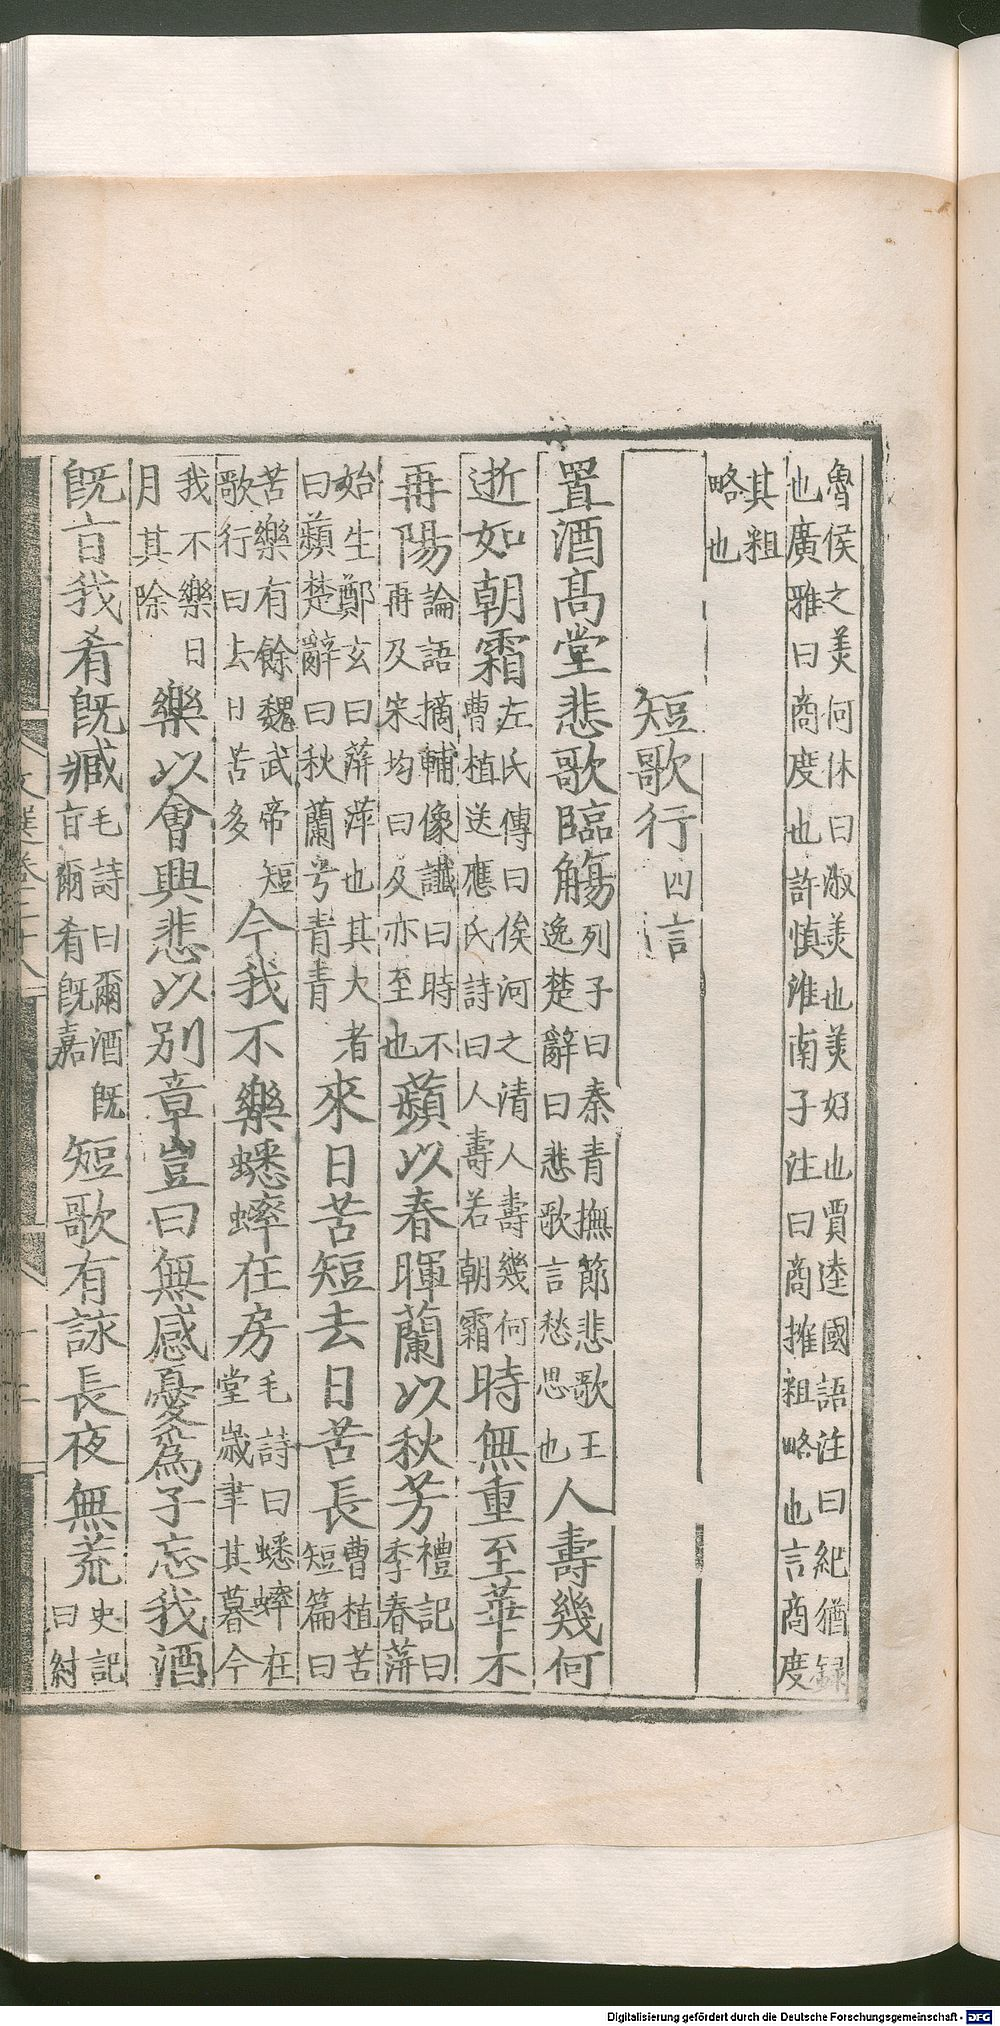 魯侯之美何休曰淑美也美好也賈逵國語注曰紀猶録
也廣雅曰商度也許慎淮南子注曰商搉粗略也言商度
其粗
略也
短歌行四言
置酒高堂悲歌臨觴列子曰秦青撫節悲歌王逸楚辭曰悲歌言愁思也人壽幾何
逝如朝霜左氏傳曰俟河之清人壽幾何曹植送應氏詩曰人壽若朝霜時無重至華不
再陽論語摘輔像讖曰時不再及宋均曰及亦至也蘋以春暉蘭以秋芳禮記曰季春萍
始生鄭玄曰萍蓱也其大者曰蘋楚辭曰秋蘭兮青青來日苦短去日苦長曹植苦短篇曰
苦樂有餘魏武帝短歌行曰去日苦多今我不樂蟋蟀在房毛詩曰蟋蟀在堂歲聿其暮今
我不樂日月其除樂以會興悲以別章豈曰無感憂爲子忘我酒
旣旨我肴旣臧毛詩曰爾酒旣旨爾肴旣嘉短歌有詠長夜無荒史記曰紂
文選卷二十八
Digitalisierung gefördert durch die Deutsche Forschungsgemeinschaft - DFG